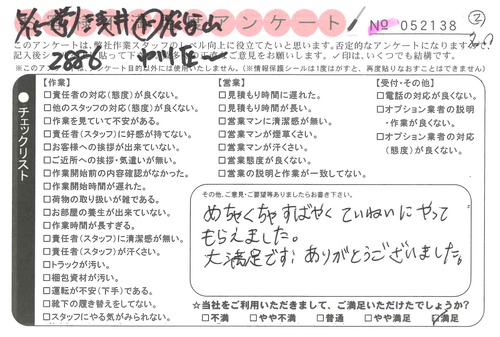 アンケート
No 052138
②
2086
このアンケートは、弊社作業スタッフのレベル向上に役立てたいと思います。否定的なアンケートになりますので、
※このア
ンケート目的以外には使用いたしません。(※情報保護シールは1度はがすと、再度貼りなおすことはできません)
チェックリスト
【作業】
□責任者の対応(態度)が良くない。
□他のスタッフの対応(態度)が良くない。
□作業を見ていて不安がある。
□責任者(スタッフ)に好感が持てない。
□お客様への挨拶が出来ていない。
□ご近所への挨拶・気遣いが無い。
□作業開始前の内容確認がなかった。
□作業開始時間が遅れた。
□荷物の取り扱いが雑である。
□お部屋の養生が出来ていない。
□作業時間が長すぎる。
□責任者(スタッフ)に清潔感が無い。
□責任者(スタッフ)が汗くさい。
□トラックが汚い。
□梱包資材が汚い。
□運転が不安(下手)である。
□靴下の履き替えをしてない。
□スタッフにやる気がみられない。
【営業】
□見積もり時間に遅れた。
□見積もり時間が長い。
□営業マンに清潔感が無い。
□営業マンが煙草くさい。
□営業マンが汗くさい。
□営業態度が良くない。
□営業の説明と作業が一致してない。
【受付・その他】
□電話の対応が良くない。
□オプション業者の説明
・作業が良くない。
□オプション業者の対応
(態度)が良くない。
その他、ご意見・ご要望等ありましたらお書き下さい。
めちゃくちゃすばやく ていねいにやって
もらえました。
大満足です! ありがとうございました。
☆当社をご利用いただきまして、ご満足いただけたでしょうか?
□不満 □やや不満 □普通 □やや満足 ☑満足